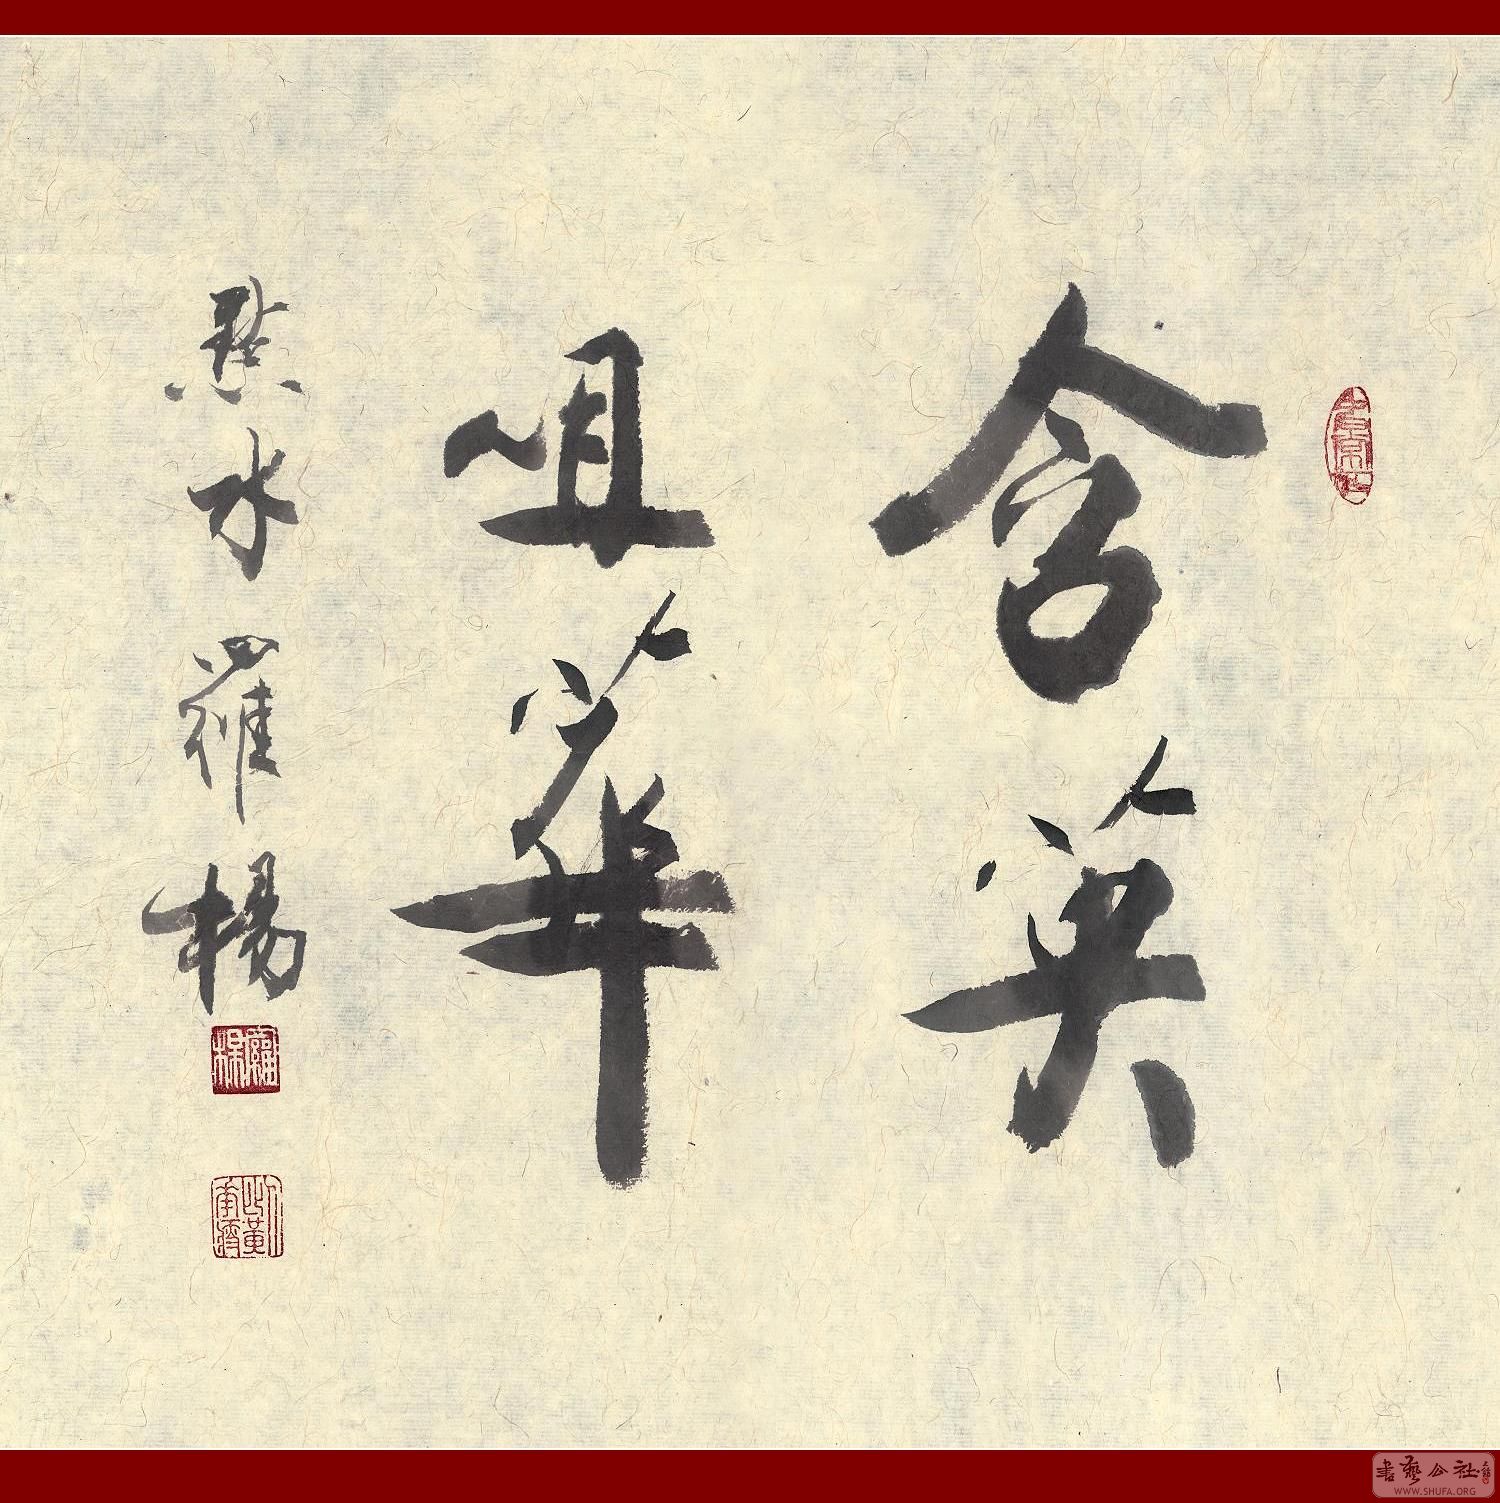 含英
咀華
黟水羅楊
羅楊
書藝公社
WWW.SHUFA.ORG